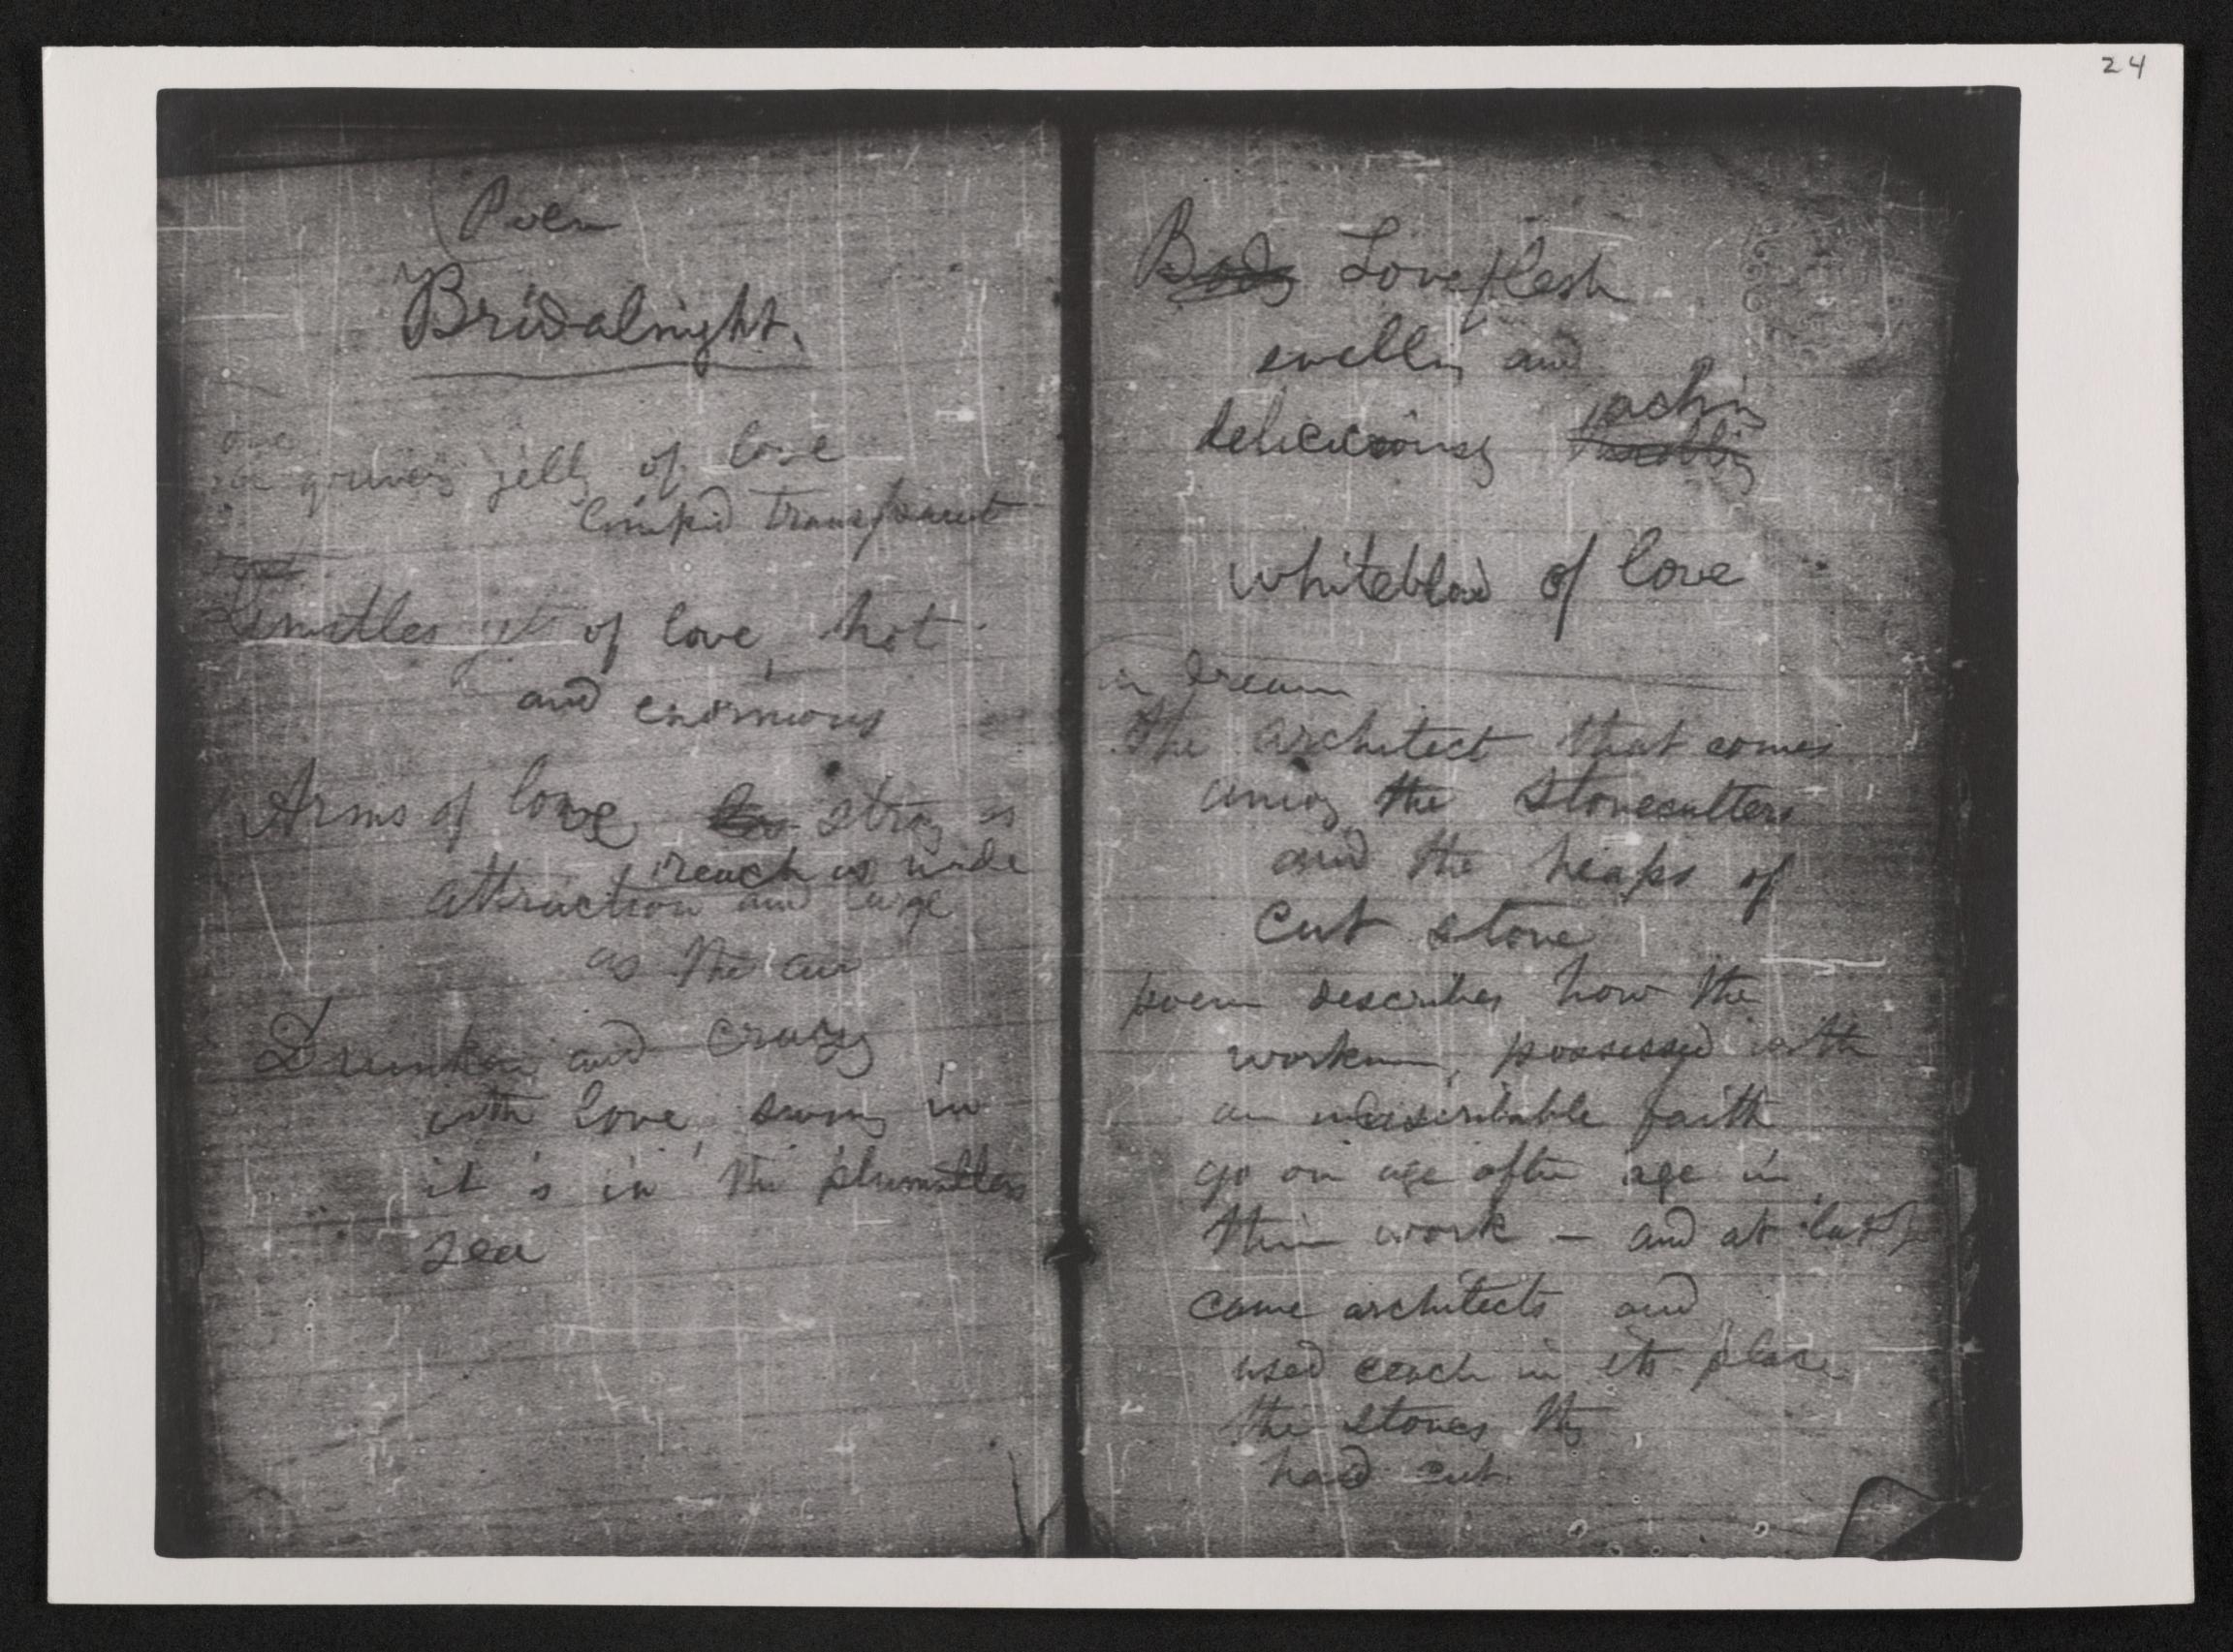 24
Poem
Bridalnight.
one
quivering jelly of love
limpid transparent
Limitless jets of love, hot
and enormous
Arms of love strong as
reach as wide
attraction and large
as the air
Drunken and crazy
with love, swing in
it s in the plumetless
sea
Body Loveflesh
swelling and
aching
deliciously throbbing
whiteblow of love
in dream
The architect that comes
among the stonecutters
and the heaps of
cut stone
poem describes how the
workmen, possessed with
an indescribable faith
go on age after age in
their work — and at last
came architects and
used each in its place
the stones they
had cut.